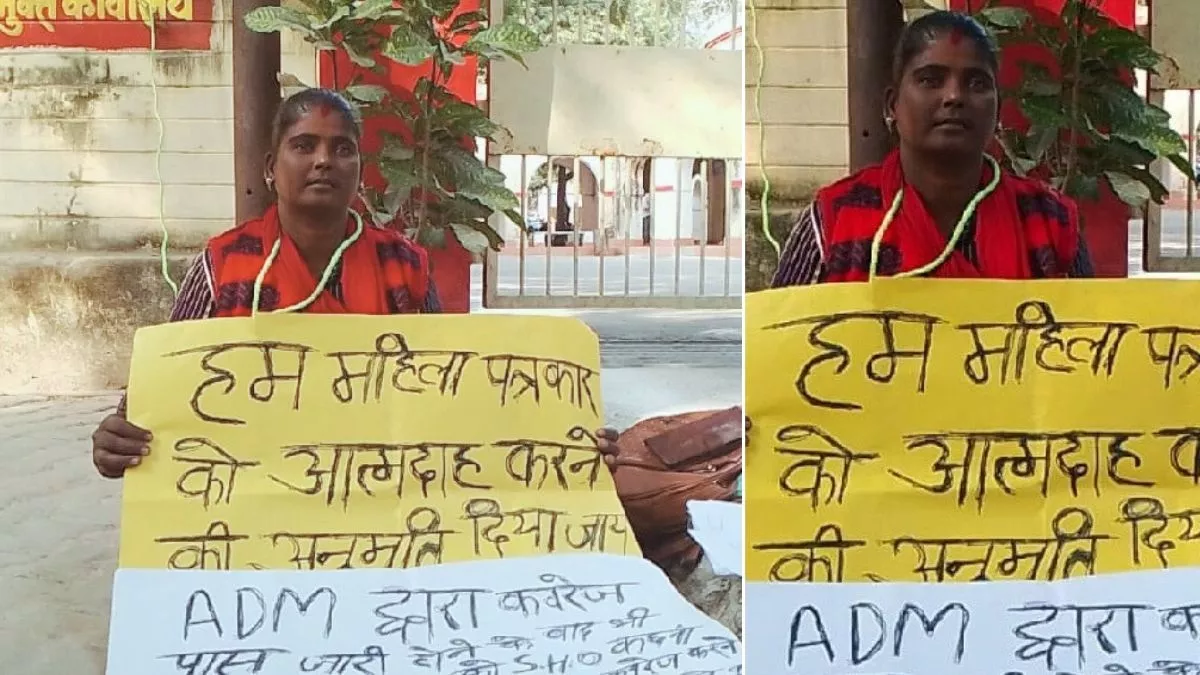 मुक्त कार्यालय
हम महिला पत्रकार
को आत्मदाह करने
की अनुमति दिया जाय
ADM द्वारा कवरेज
पास जारी होने के बाद भी
S.H.O कवरेज करने
हम महिला पत्र
को आत्मदाह क
की अनुमति दिय
ADM द्वारा क